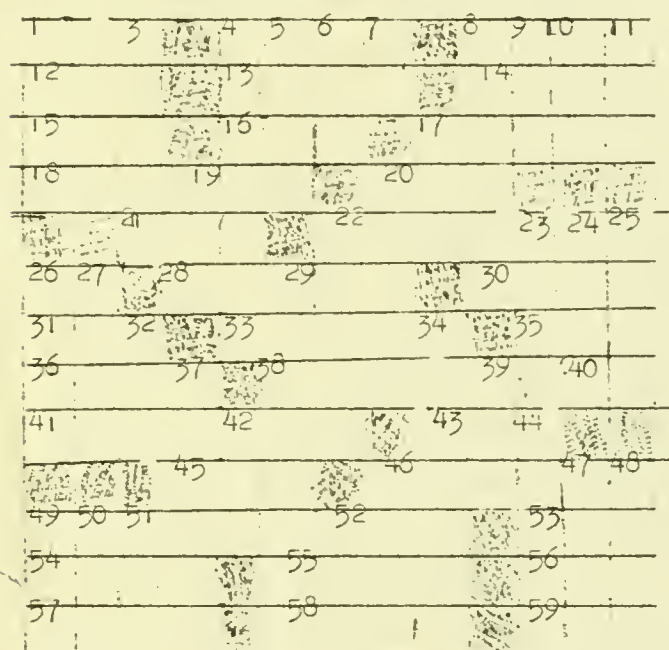 1 3 4 5 6 7 8 9 10 11
12 13 14
15 16 17
18 19 20
21 22 23 24 25
26 27 28 29 30
31 32 33 34 35
36 37 38 39 40
41 42 43 44
45 46 47 48
49 50 51 52 53
54 55 56
57 58 59